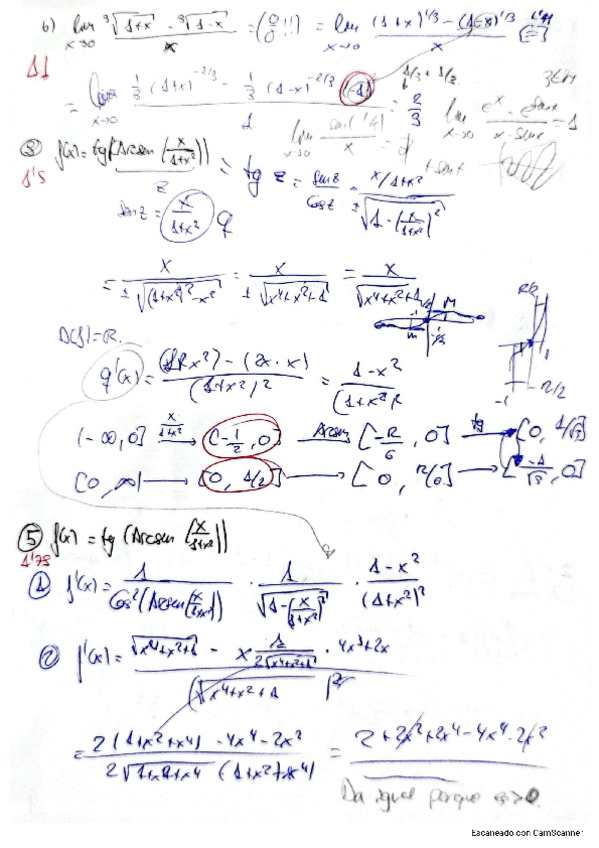 6) lim x→0 ∛(1+x) - ∛(1-x) / x = (0/0 !!) = lim x→0 (1+x)^1/3 - (1-x)^1/3 / x
1/3 + 1/3
= lim x→0 1/3 (1+x)^-2/3 - 1/3 (1-x)^-2/3 (-1) / 1 = 2/3
lim x→0 e^x - e^senx / x - senx = 1
lim x→0
③ f(x) = tg(Arcsen(x/1+x²)) = tg z = sen z / cos z = x/1+x² / ± √(1-(x/1+x²)²)
1'5
sen z = x/1+x²
= x / ± √((1+x²)²-x²) = x / ± √(x⁴+x²+1) = x / √(x⁴+x²+1)
D(f)=R.
g'(x) = (1+x²) - (2x·x) / (1+x²)² = 1-x² / (1+x²)²
(-∞,0] x/1+x² → [-1/2,0] Arcsen → [-π/6,0] tg → [0,1/√3]
[0,∞) → [0,1/2] → [0,π/6] → [-1/√3,0]
⑤ f(x) = tg(Arcsen(x/1+x²))
1'75
① f'(x) = 1 / cos²(Arcsen(x/1+x²)) · 1 / √(1-(x/1+x²)²) · 1-x² / (1+x²)²
② f'(x) = √(x⁴+x²+1) - x 1/2√(x⁴+x²+1) · 4x³+2x / (√(x⁴+x²+1))²
= 2(1+x²+x⁴) - 4x⁴ - 2x² / 2√(1+x²+x⁴) (1+x²+x⁴) = 2+2x²+2x⁴-4x⁴-2x²
Da igual porque es >0.
Escaneado con CamScanner